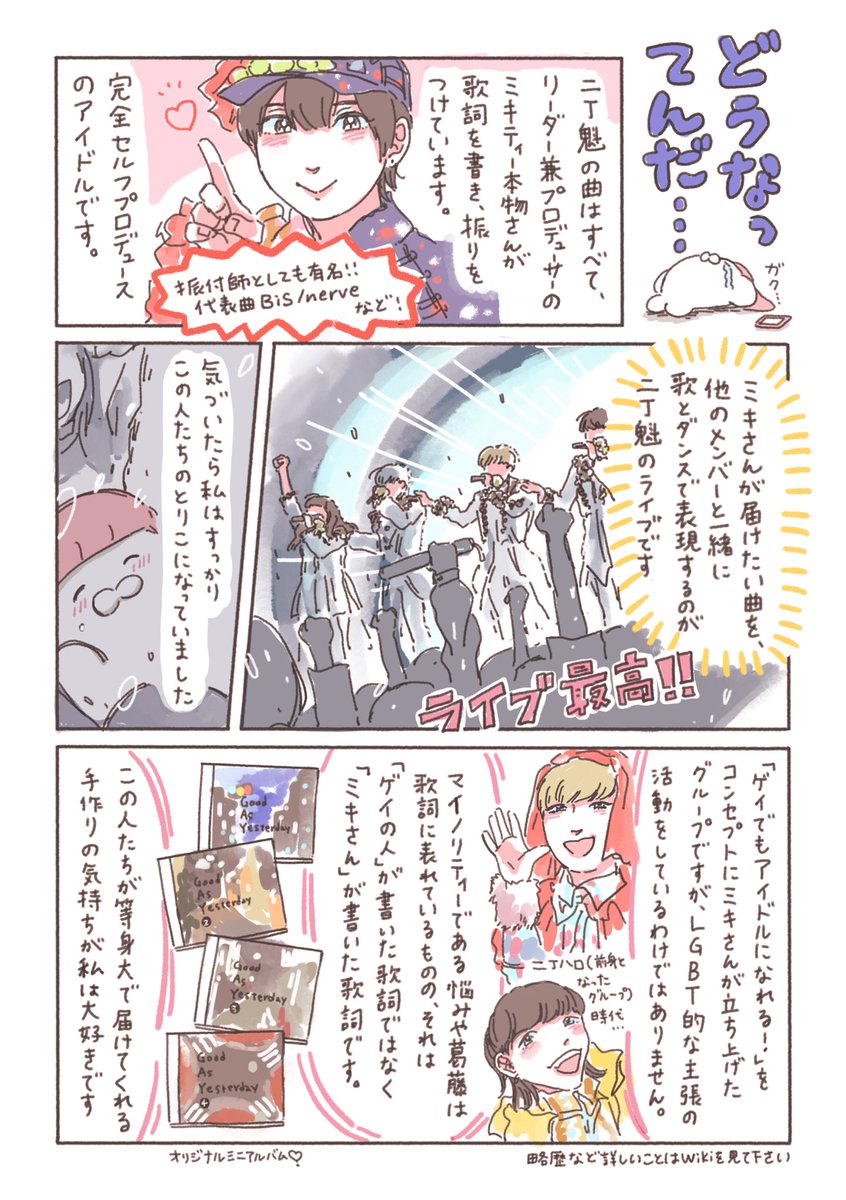 どうなっ
てんだ…
ガク…
二丁魁の曲はすべて、
リーダー兼プロデューサーの
ミキティー本物さんが
歌詞を書き、振りを
つけています。
完全セルフプロデュース
のアイドルです。
振付師としても有名!!
代表曲BiS/nerve
など!
ミキさんが届けたい曲を、
他のメンバーと一緒に
歌とダンスで表現するのが
二丁魁のライブです
ライブ最高!!
気づいたら私はすっかり
この人たちのとりこになっていました
「ゲイでもアイドルになれる!」を
コンセプトにミキさんが立ち上げた
グループですが、LGBT的な主張の
活動をしているわけではありません。
二丁ハロ(前身と
なった
グループ)
時代…
マイノリティーである悩みや葛藤は
歌詞に表れているものの、それは
「ゲイの人」が書いた歌詞ではなく
「ミキさん」が書いた歌詞です。
Good
As
Yesterday
Good
As
Yesterday
2
Good
As
Yesterday
3
Good
As
Yesterday
4
この人たちが等身大で届けてくれる
手作りの気持ちが私は大好きです
オリジナルミニアルバム♡
略歴など詳しいことはWikiを見て下さい